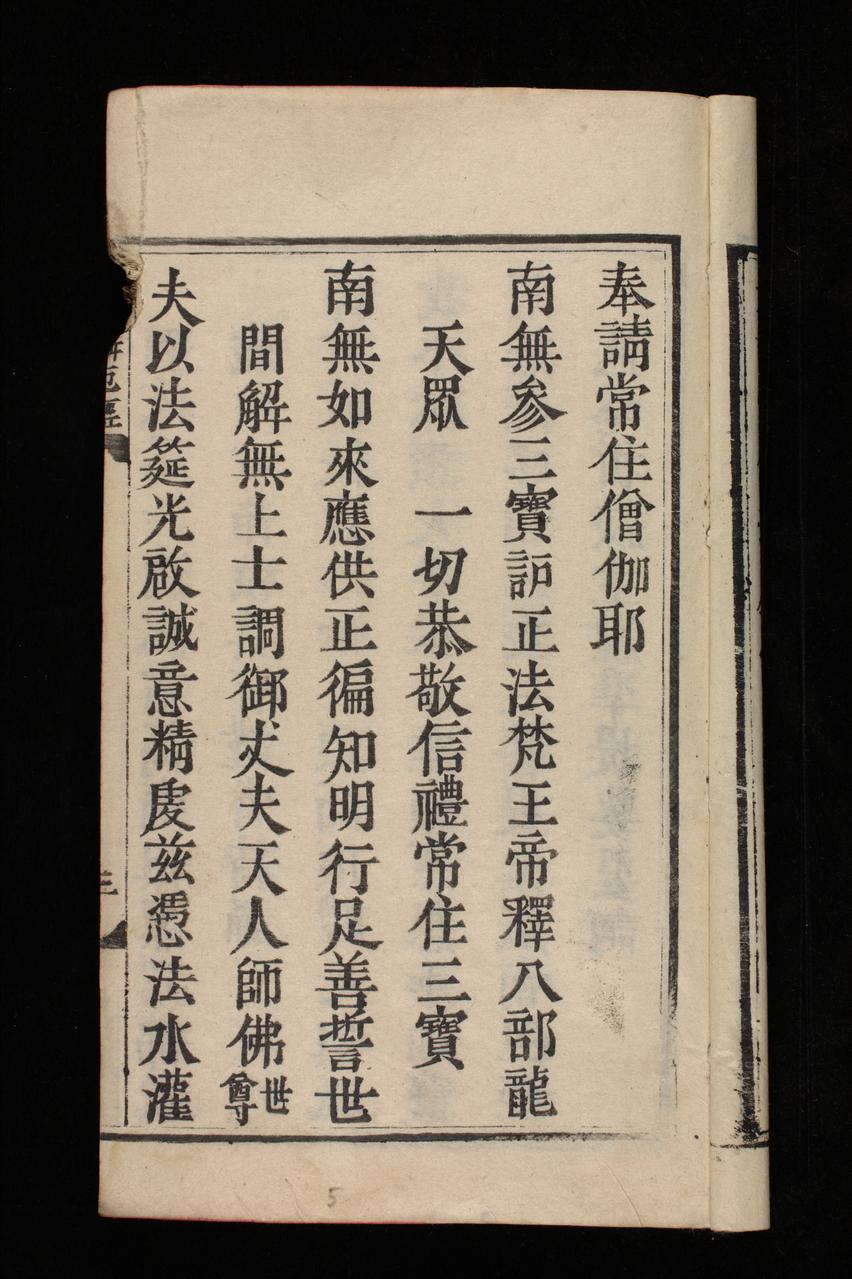 奉請常住僧伽耶
南無參三寶訢正法梵王帝釋八部龍
天眾　一切恭敬信禮常住三寶
南無如來應供正徧知明行足善誓世
間解無上士調御丈夫天人師佛世尊
夫以法筵光啟誠意精虔茲憑法水灌
三
5